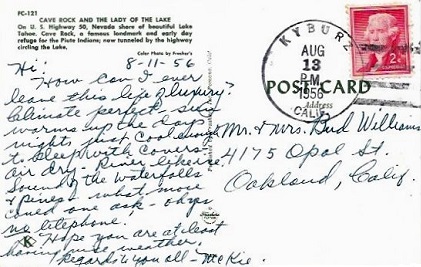 FC-121
CAVE ROCK AND THE LADY OF THE LAKE
On U. S. Highway 50, Nevada shore of beautiful Lake
Tahoe. Cave Rock, a famous landmark and early day
refuge for the Piute Indians; now tunneled by the highway
circling the Lake.
Color Photo by Frasher's
Hi! 8-11-56
How can I ever
leave this life of luxury?
Climate perfect, sun
warms up the days
nights, just cool enough
to sleep with covers
air dry - River likewise
Sound of the waterfalls
& Pines - what more
could one ask - oh yes
no telephone,
Hope you are at least
having nice weather,
Regards to you all - Mckie.
KYBURZ
AUG
13
P.M.
1956
CALIF.
2¢
POST CARD
Address
Mr. & Mrs. Bud Williams
4175 Opal St.
Oakland, Calif.
K